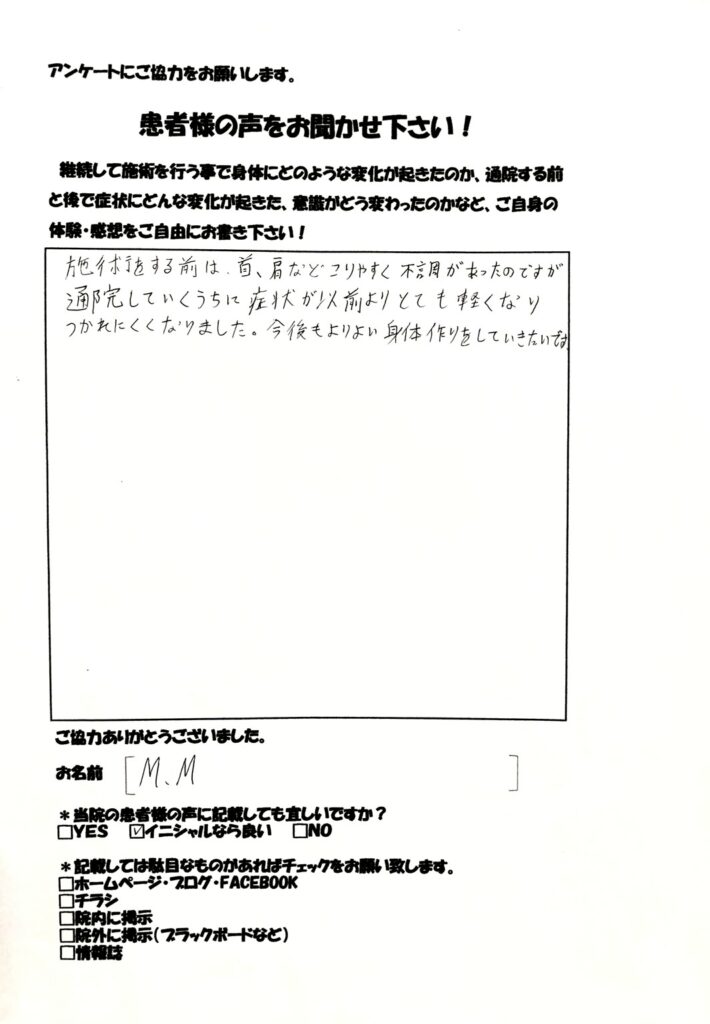 アンケートにご協力をお願いします。
患者様の声をお聞かせ下さい！
継続して施術を行う事で身体にどのような変化が起きたのか、通院する前
と後で症状にどんな変化が起きた、意識がどう変わったのかなど、ご自身の
体験・感想をご自由にお書き下さい！
施術をする前は、首、肩などこりやすく不調があったのですが
通院していくうちに症状が以前よりとても軽くなり
つかれにくくなりました。今後もよりよい身体作りをしていきたいです。
ご協力ありがとうございました。
お名前 [M.M]
＊当院の患者様の声に記載しても宜しいですか？
□YES ☑イニシャルなら良い □NO
＊記載しては駄目なものがあればチェックをお願い致します。
□ホームページ・ブログ・FACEBOOK
□チラシ
□院内に掲示
□院外に掲示（ブラックボードなど）
□情報誌